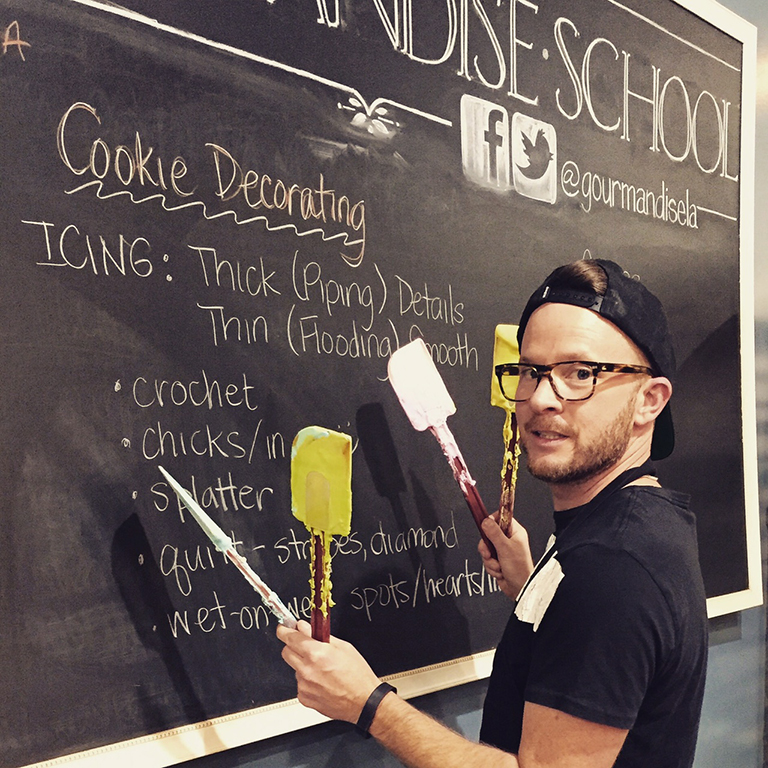 A
ANDISE·SCHOOL
f
@gourmandisela
Cookie Decorating
ICING: Thick (Piping) Details
Thin (Flooding) Smooth
• crochet
• chicks/in
• splatter
• quilt - stripes, diamond
• wet-on-we spots/hearts/